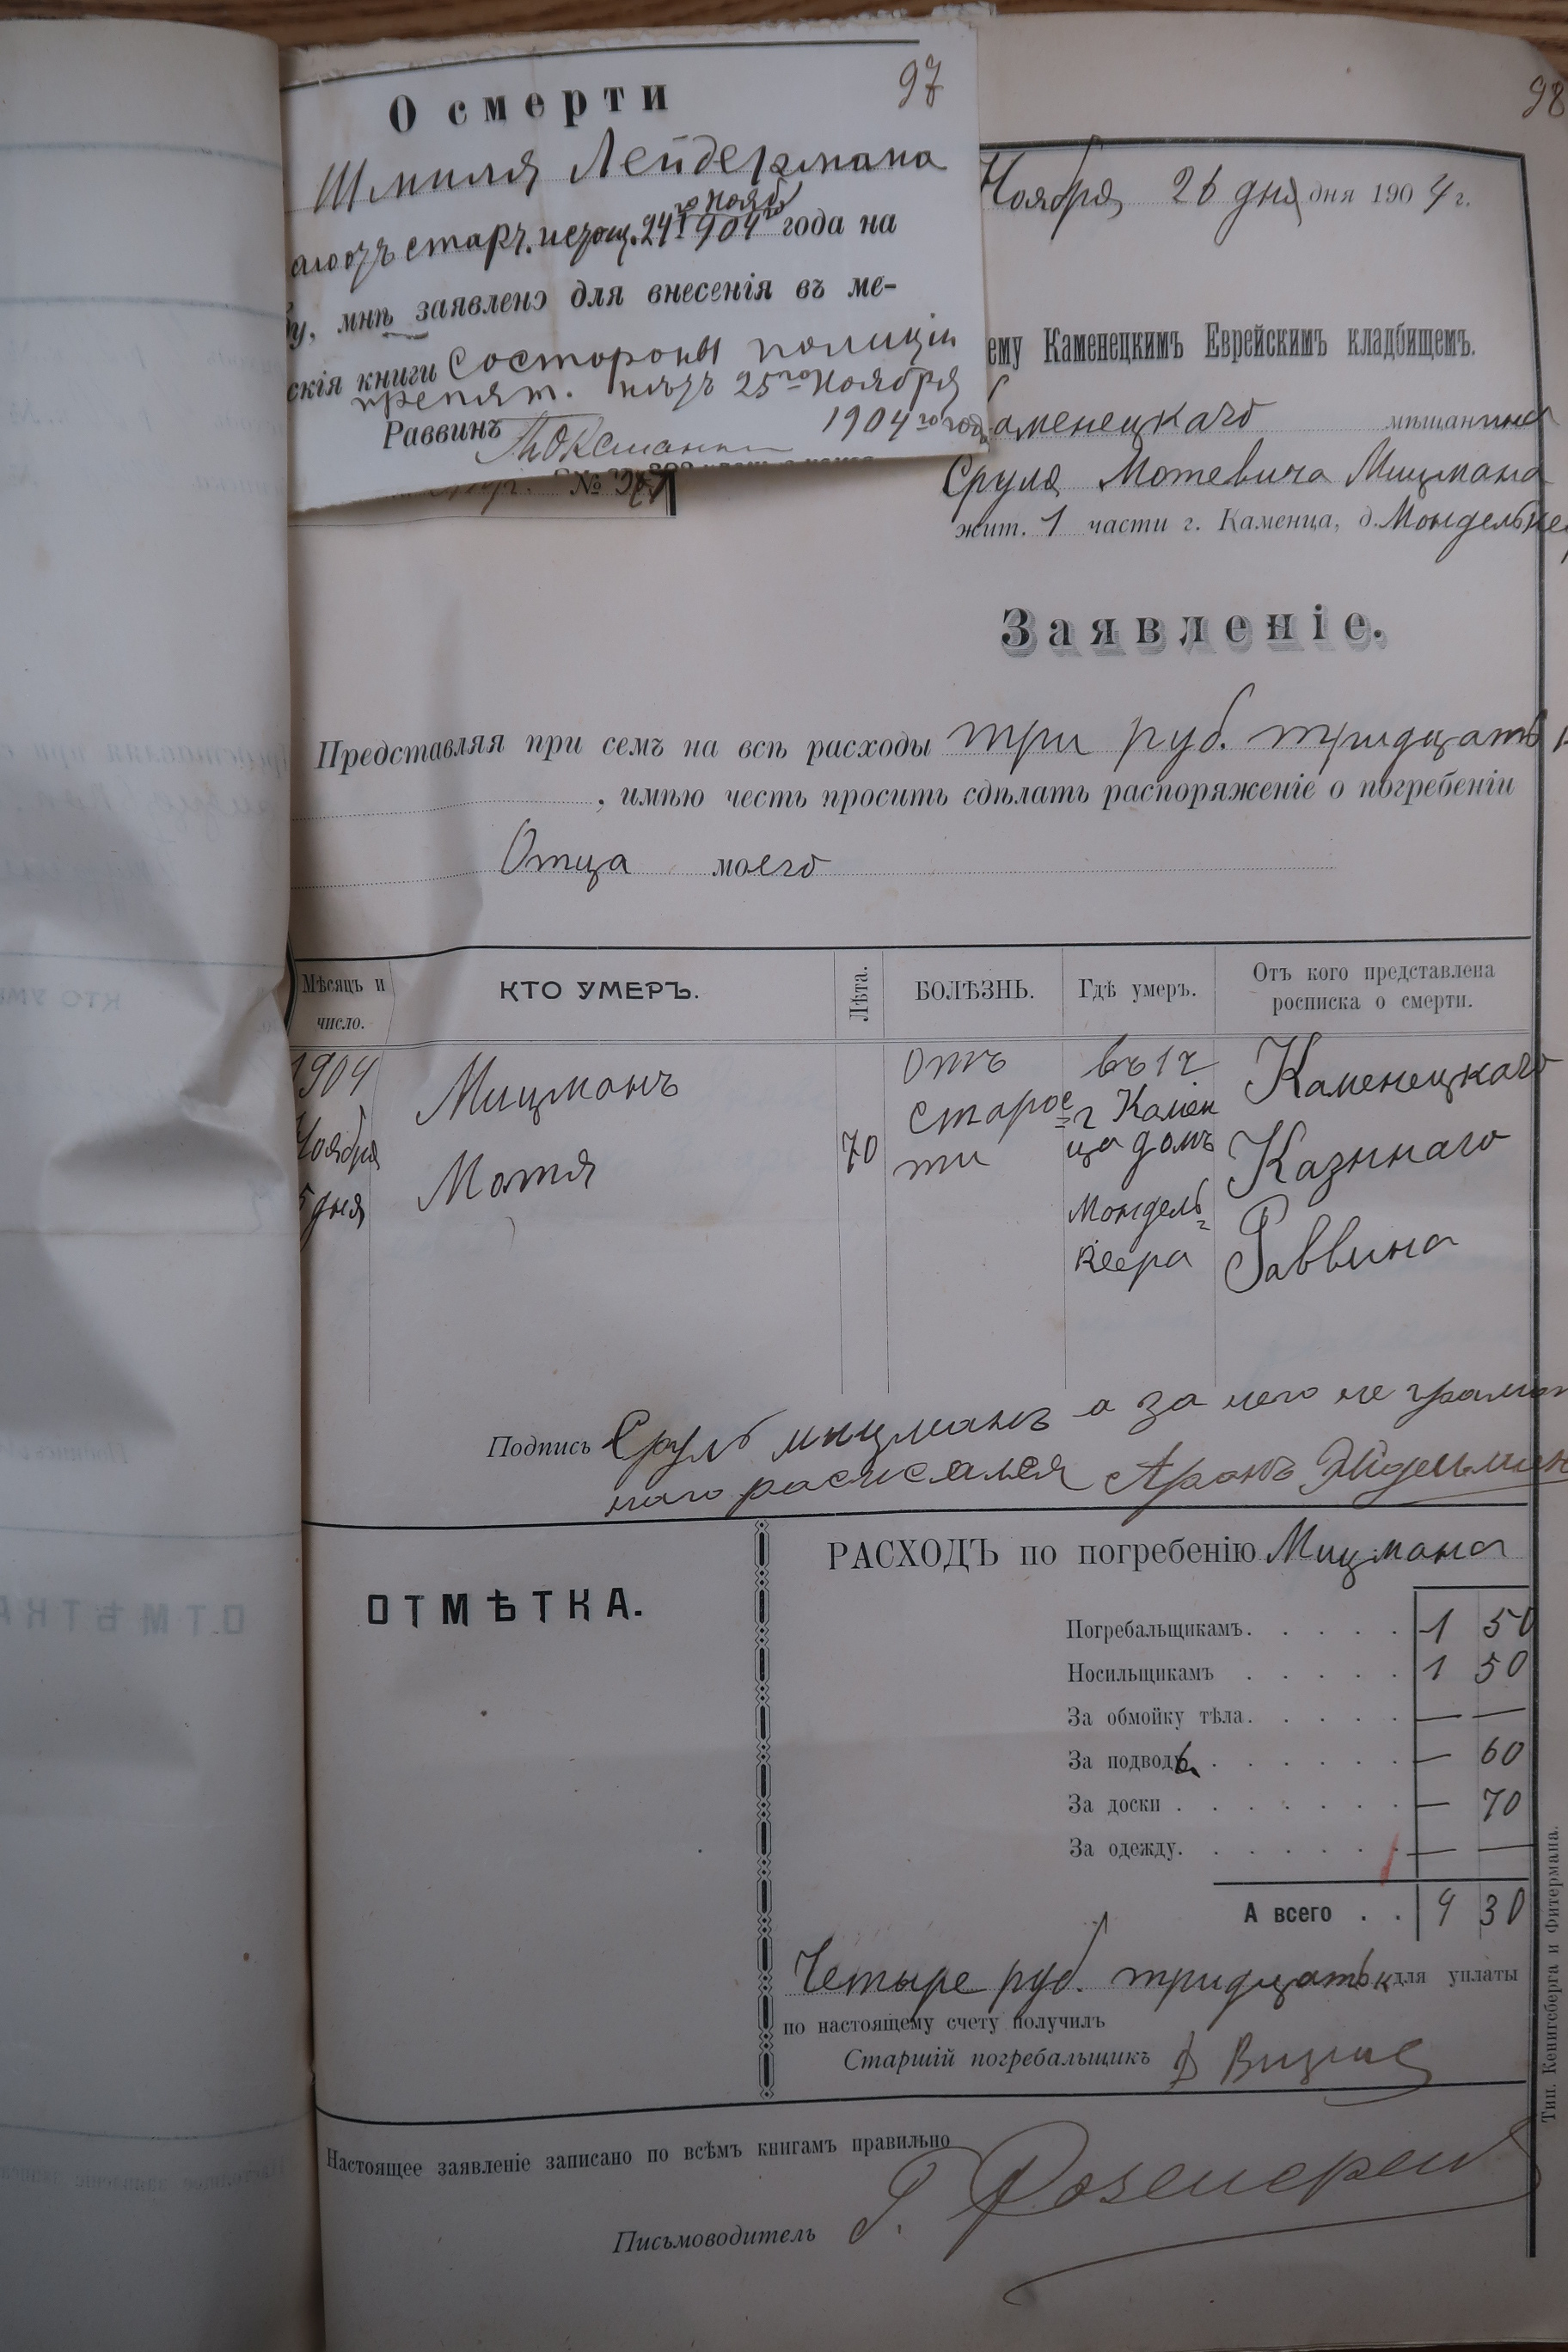 О смерти
97
Шмиля Лейдермана
старч. истощ. 24го Нояб
1904го года на
у, мнѣ заявлено для внесенія въ ме-
скія книги Состороны полиціи
препят. нѣтъ 25го Ноября
1904го год
Раввинъ
№
98
Ноября 26 дня дня 1904 г.
ему Каменецкимъ Еврейскимъ кладбищемъ.
аменецкаго мѣщанина
Сруля Мотевича Мицмана
жит. 1 части г. Каменца, д. Мондель
Заявленіе.
Представляя при семъ на всѣ расходы три руб. тридцать
, имѣю честь просить сдѣлать распоряженіе о погребеніи
Отца моего
Мѣсяцъ и число.
КТО УМЕРЪ.
Лѣта.
БОЛѢЗНЬ.
Гдѣ умеръ.
Отъ кого представлена росписка о смерти.
1904
Ноября
5 дня
Мицманъ
Мотя
70
Отъ
старос
ти
въ 1 ч
г Камен
ца домъ
Мондель-
кеера
Каменецкаго
Казннаго
Раввина
Подпись Сруль мицманъ а за него не грамот
наго расписался Аронъ
ОТМѢТКА.
РАСХОДЪ по погребенію Мицмана
Погребальщикамъ. . . . . 1 50
Носильщикамъ . . . . . 1 50
За обмойку тѣла. . . . . — —
За подводы . . . . . . — 60
За доски . . . . . . . — 70
За одежду. . . . . . . — —
А всего . . 4 30
Четыре руб. тридцать к для уплаты
по настоящему счету получилъ
Старшій погребальщикъ
Настоящее заявленіе записано по всѣмъ книгамъ правильно
Письмоводитель
Тип. Кенигсберга и Фитермана.